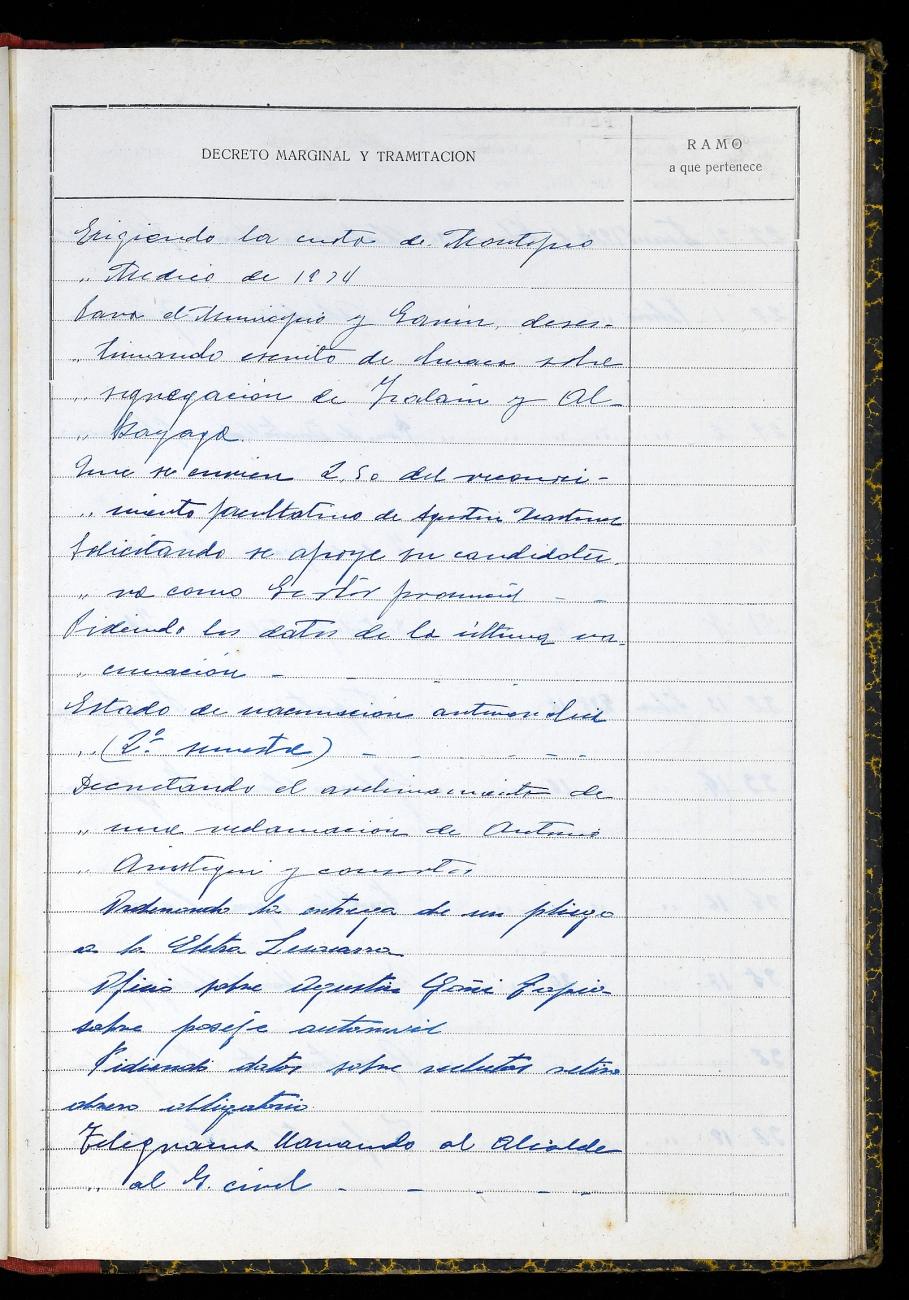 DECRETO MARGINAL Y TRAMITACION
RAMO
a que pertenece
Exigiendo la cuota de Montepio
„ Medico de 1934
Para el Municipio y Garin, deses-
„ timando escrito de sobre
„ segregacion de y Al-
„
Que se envien 2,50 del reconoci-
„ miento facultativo de Agustin Martinez
Solicitando se apoye su candidatu-
„ ra como Gestor provincial - -
Pidiendo los datos de la última va-
„ cunación - - -
Estado de vacunación antivariolica
„ (2º semestre) - - - - -
Decretando el archivamiento de
„ una reclamacion de Antonio
„ Aristegui y consortes
Ordenando la entrega de un pliego
a la Elektra
Oficio sobre Agustin Goñi
sobre poseje automovil
Pidiendo datos sobre retiro
obrero obligatorio
Telegrama llamando al Alcalde
„ al G. civil - - - - -